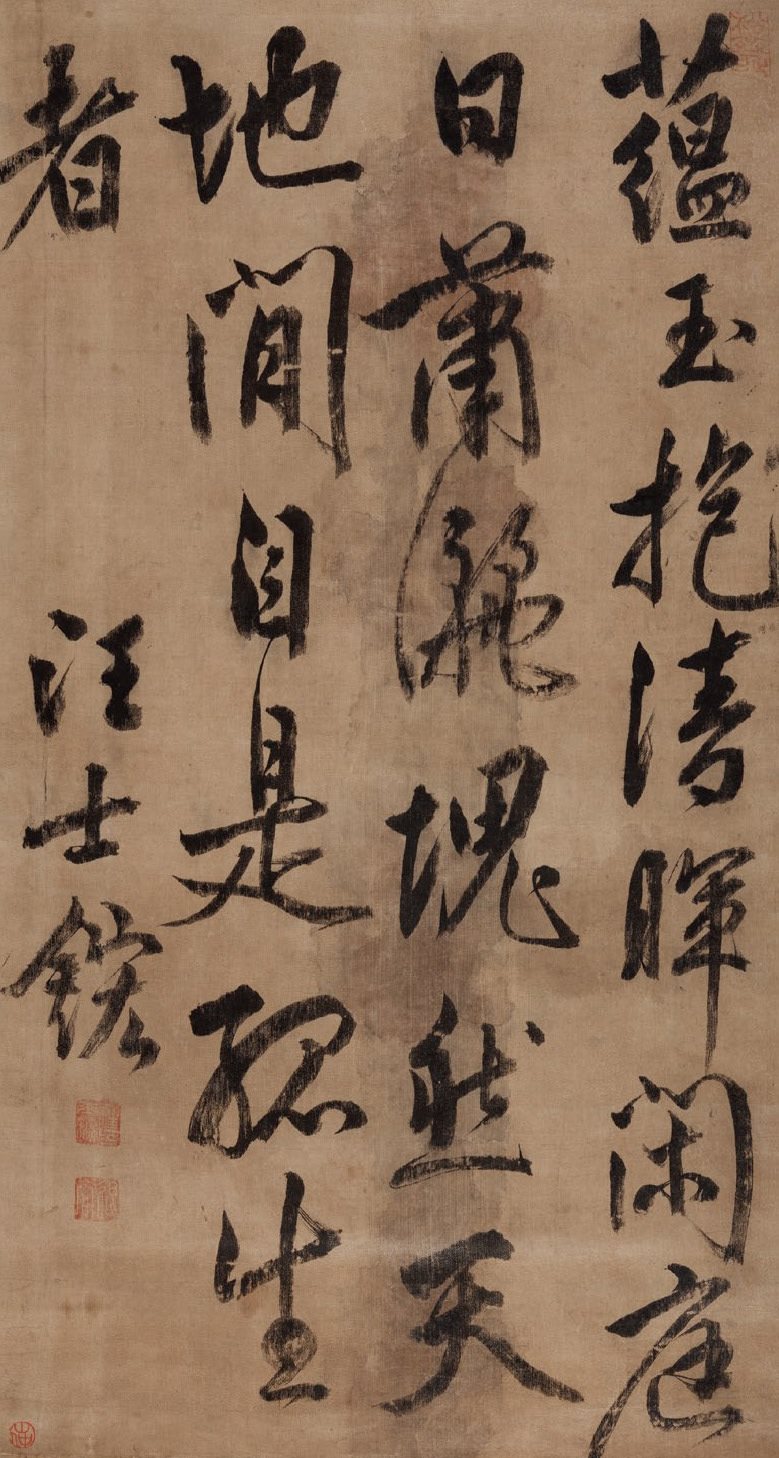 蕴玉抱清暉閑庭
日蕭灑塊然天
地閒自是孤生
者
汪士鋐